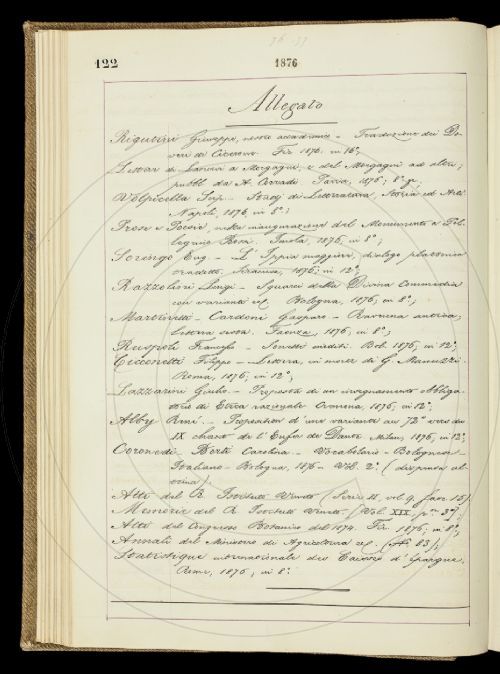 122
1876
Allegato
Rigutini Giuseppe, nostro accademico – Traduzione dei Do-
veri di Cicerone. Fir. 1876. in 16°;
Lettere di Lancisi a Morgagni, e del Morgagni ad altri,
pubbl. da A. Corradi. Pavia, 1876; 8° gr.
Volpicella Scip. – Studj di Letteratura, Storia ed Arti
Napoli, 1876, in 8°;
Prose e Poesie, nella inaugurazione del Monumento a Pel-
legrino Rossi. Imola, 1876, in 8°;
Eug. – L'Ippia maggiore, dialogo platonico
tradotto. Siracusa, 1876; in 12°;
Razzolini Luigi – Squarci della Divina Commedia
con varianti ec. Bologna, 1876, in 8°;
Martinetti – Cardoni Gasparo – Ravenna antica,
lettera sesta. Faenza, 1876, in 8°;
Ruspoli Francesco – Sonetti inediti. Bol. 1876, in 12°;
Cicconetti Filippo – Lettera, in morte di G. Manuzzi.
Roma, 1876; in 12°;
Lazzarini Giulio. – Proposta di un insegnamento obbliga-
torio di Etica razionale. Cremona, 1876, in 12°;
Alby René. – Proposition d'une variante au 72e vers du
IX chant de l'Enfer de Dante. Milan, 1876, in 12°;
Coronedi – Berti Carolina – Vocabolario – Bolognese
Italiano – Bologna, 1876 – Vol. 2° (dispensa
Atti del R. Istituto Veneto (Serie
Memorie del R. Istituto Veneto. (Vol. XIX,
Atti del Congresso Botanico del 1874. Fir. 1876, in 8°;
Annali del Ministero di Agricoltura ec. (N° 83);
Statistique internationale des Caisses d'épargne,
Rome, 1876, in 8°.